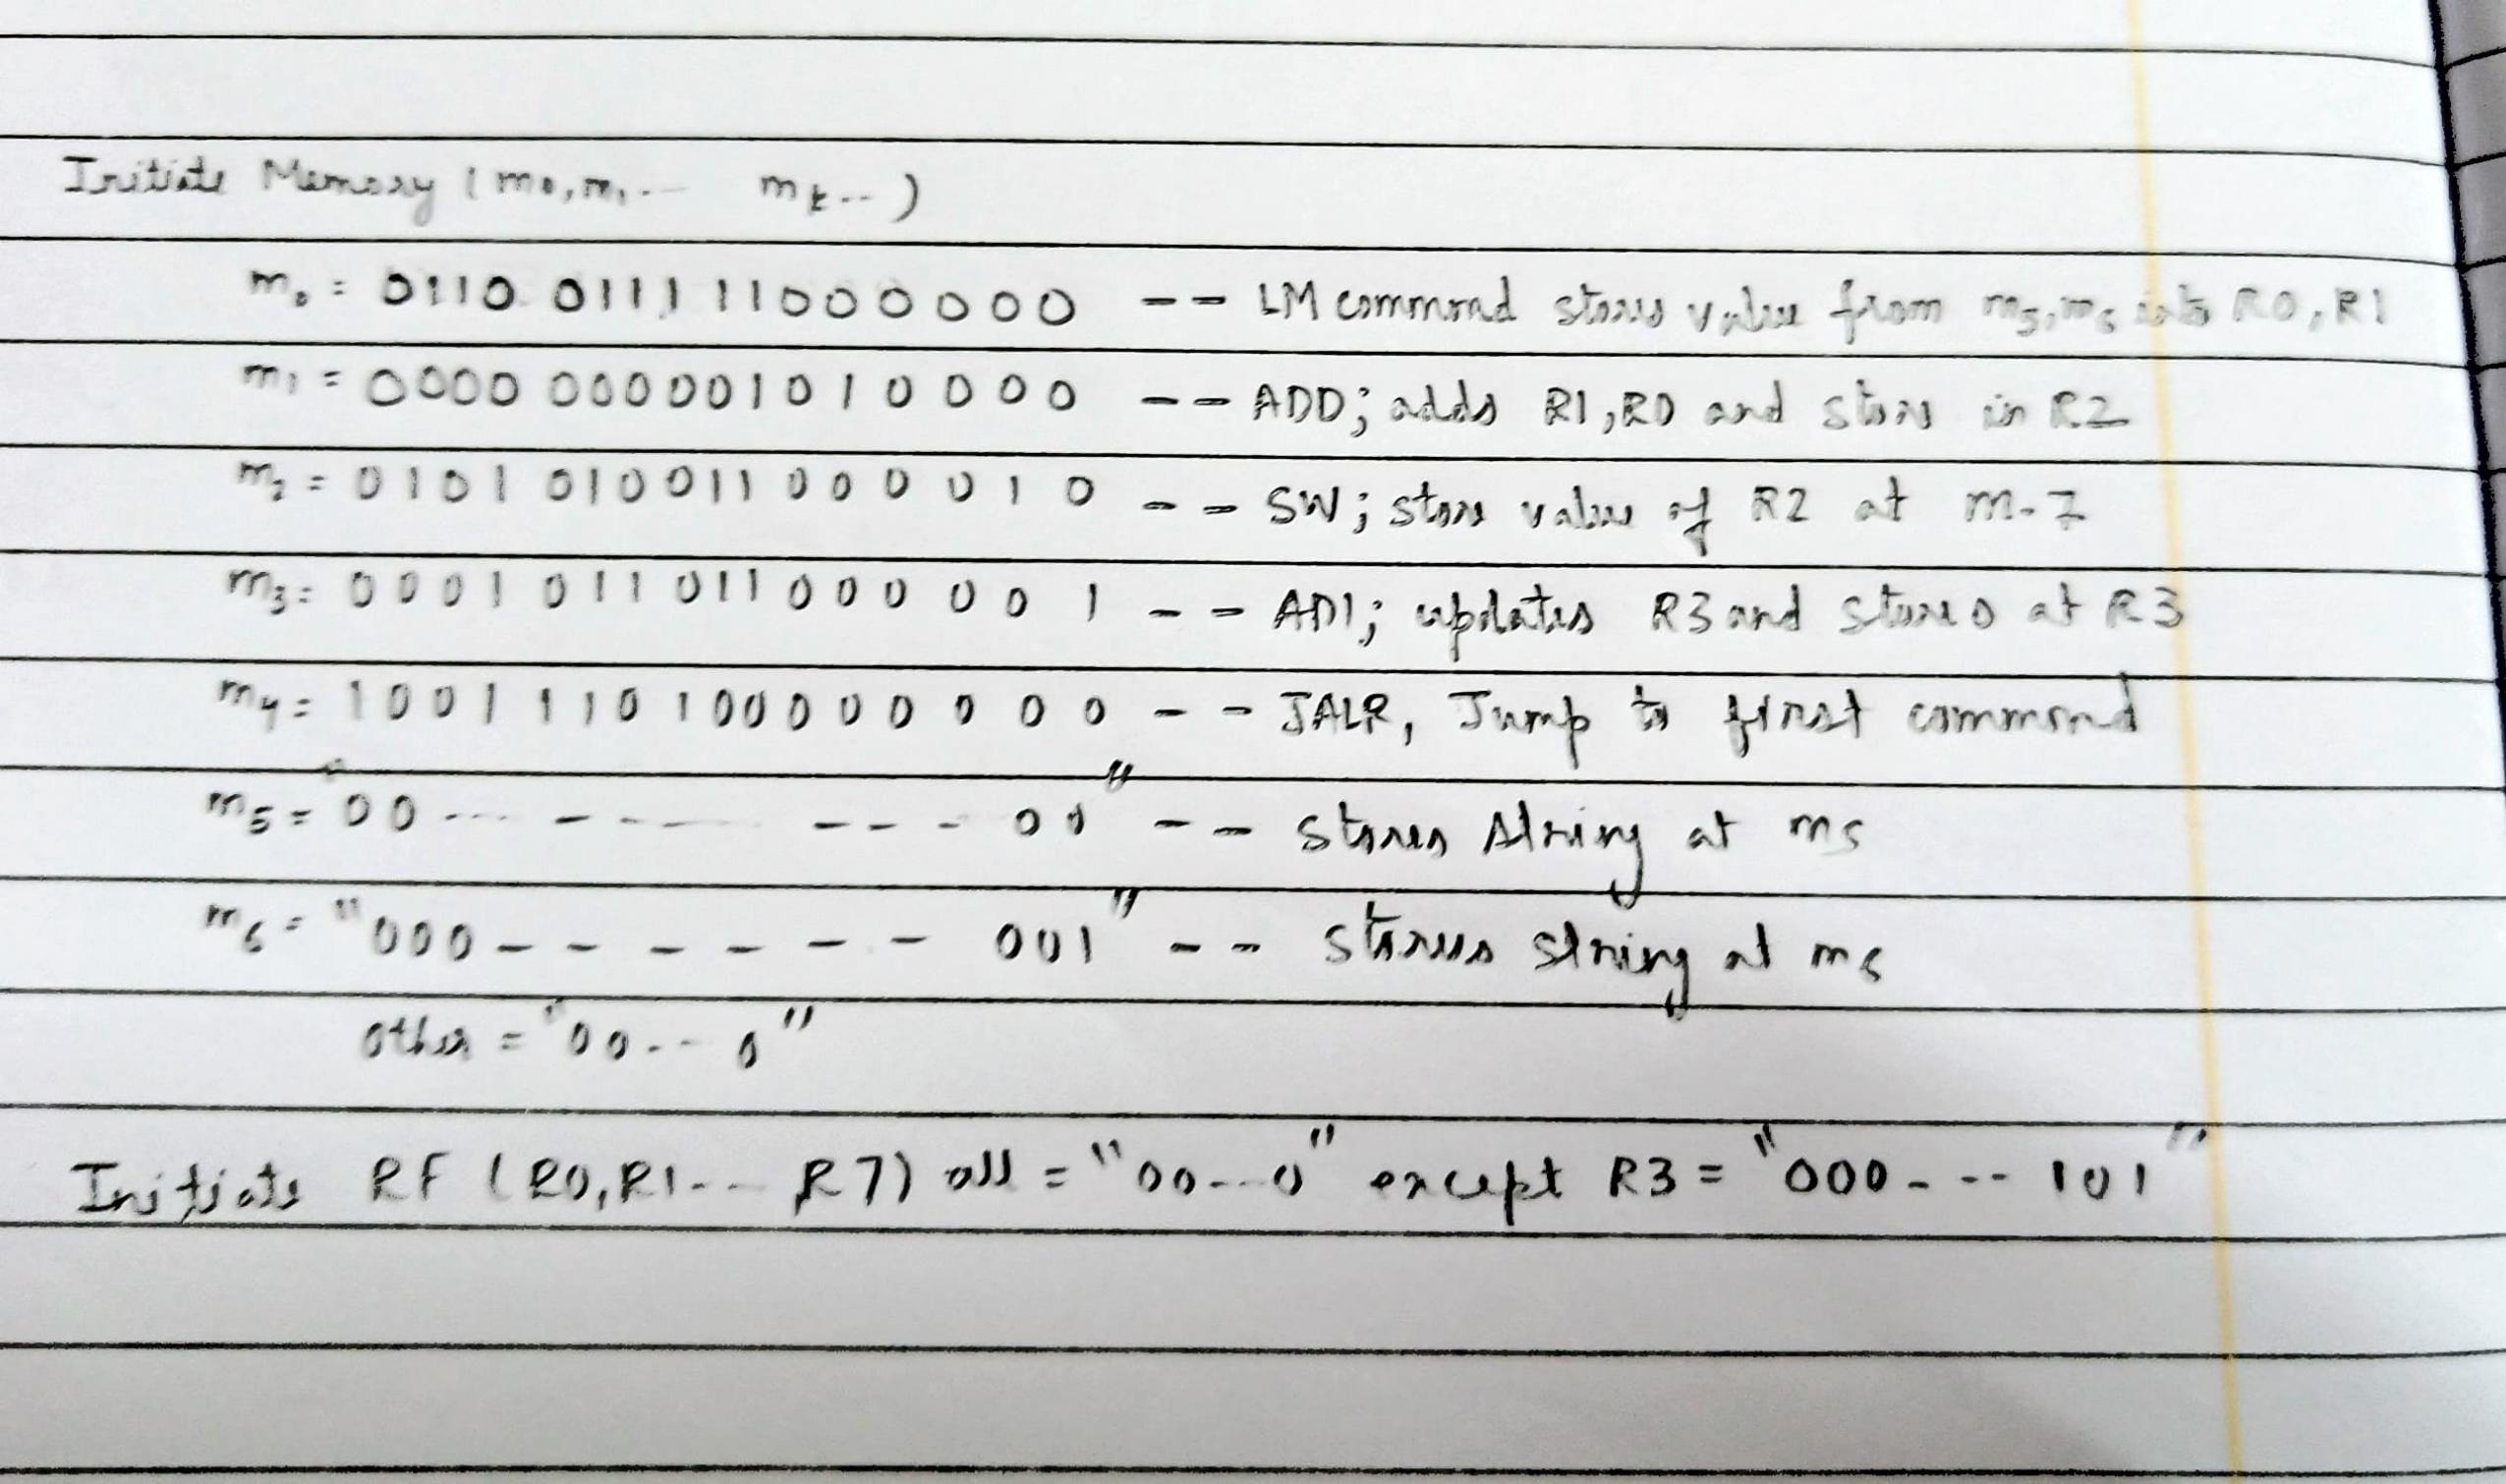 Initiate Memory (m0, m1 .. mk ..)
m0 = 0110 011111000000 -- LM command stores value from m5, m6 into R0, R1
m1 = 0000 000001010000 -- ADD; adds R1, R0 and stores in R2
m2 = 0101 010011000010 -- SW; store value of R2 at m-7
m3 = 0001 011011000001 -- ADI; updates R3 and stores at R3
m4 = 1001 110100000000 -- JALR, Jump to first command
m5 = "00 ... - - - - - - 01" -- stores string at m5
m6 = "000 - - - - - - 001" -- stores string at m6
other = "00 .. 0"
Initiate RF (R0, R1 .. R7) all = "00 .. 0" except R3 = "000 - -- 101"